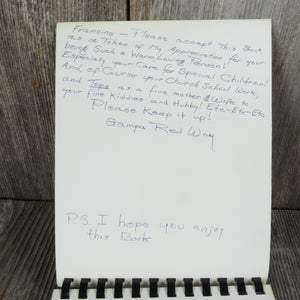 Francine — Please accept This Book
as a Token of My Appreciation for your
being Such a Warm & Loving Person!
Especially your Care for Special Children!
And, of Course your Church School Work,
and Tops as a fine mother & Wife to
your Fine Kiddies and Hubby! Etc-Etc-Etc
Please Keep it up!
Gampa Red Way
P.S. I hope you enjoy
this Book